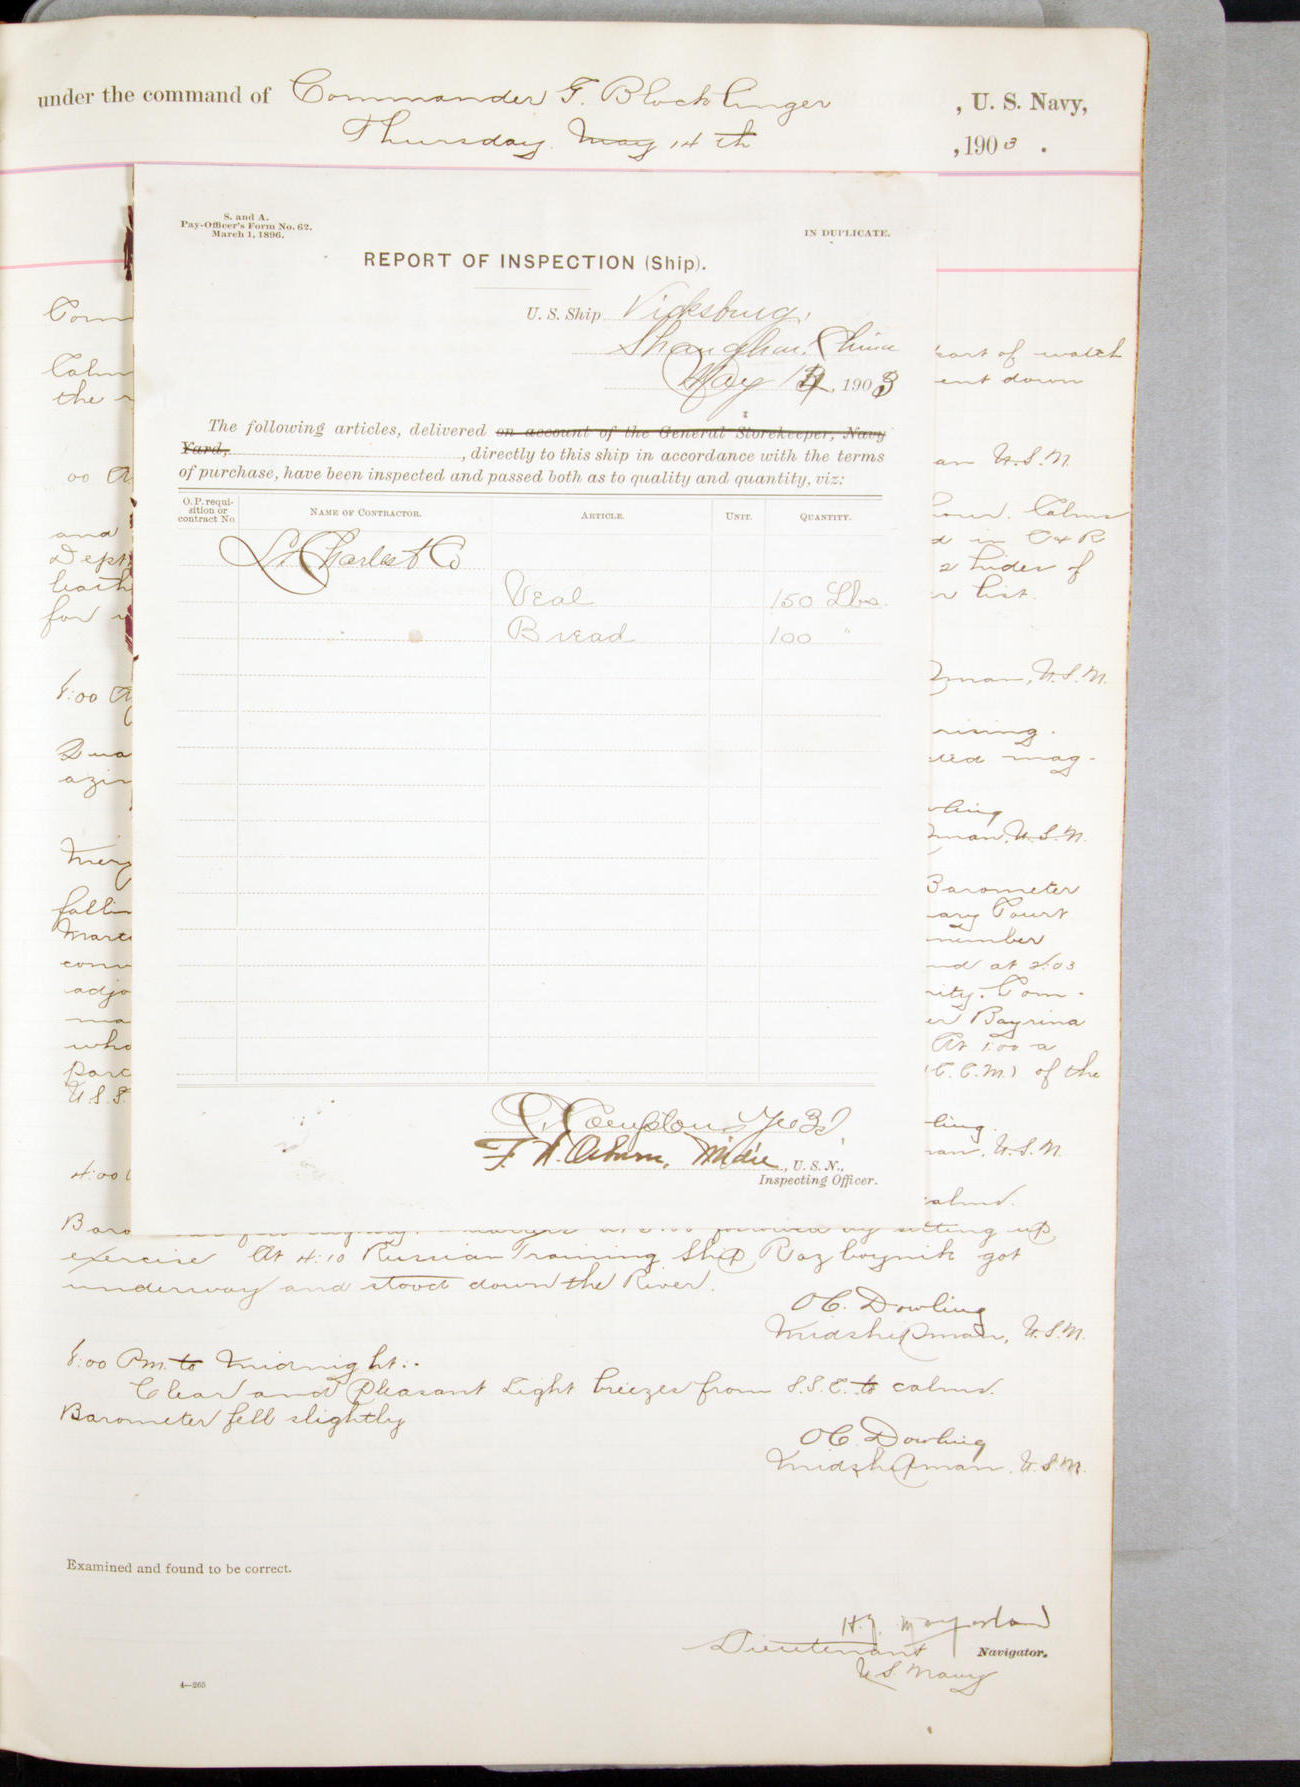 under the command of Commander F. Blocklinger , U. S. Navy,
Thursday May 14 th , 1903 .
S. and A.
Pay-Officer's Form No. 62.
March 1, 1896.
IN DUPLICATE.
REPORT OF INSPECTION (Ship).
U. S. Ship Vicksburg,
Shanghai, China
May 14, 1903
The following articles, delivered on account of the General Storekeeper, Navy
Yard, , directly to this ship in accordance with the terms
of purchase, have been inspected and passed both as to quality and quantity, viz:
O. P. requi-
sition or
contract No
NAME OF CONTRACTOR.
ARTICLE.
UNIT.
QUANTITY.
Charles & Co
Veal 150 Lbs.
Bread 100 "
Yeo 3d
F. N. Osburn, Mid'e , U. S. N.,
Inspecting Officer.
Com
Calm
the
00
and
Dept
leath
for
8:00
azin
fallin
Marc
conv
adjo
ma
who
parc
U.S.S.
4:00
part of watch
ent down
an U.S.N.
hour. Calms
d in C & R
2 hides of
list.
man, U.S.N.
rising.
mag-
ling
man, U.S.N.
Barometer
ary Court
member
nd at 2:03
ity. Com-
er Bayrina
At 1:00 a
(C.C.M.) of the
ling.
man, U.S.N.
calms.
Baro followed by setting up
exercise At 4:10 Russian Training Ship Razboynik got
underway and stood down the River.
O C. Dowling
Midshipman, U.S.N.
8:00 P.m. to Midnight:-
Clear and pleasant Light breezes from S.S.E. to calms.
Barometer fell slightly
O C. Dowling
Midshipman, U.S.N.
Examined and found to be correct.
H.
Lieutenant Navigator.
U.S. Navy
4—265